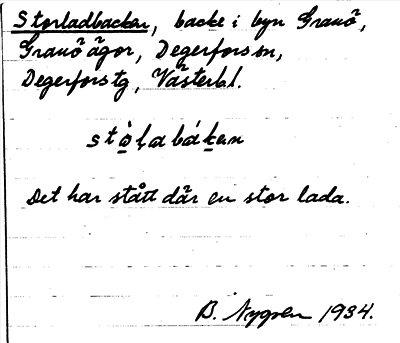 Storladbacken, backe i byn Granö,
Granö ägor, Degerfors sn,
Degerfors tg, Västerbl.
stòlabákan
Det har stått där en stor lada.
B. Nygren 1934.